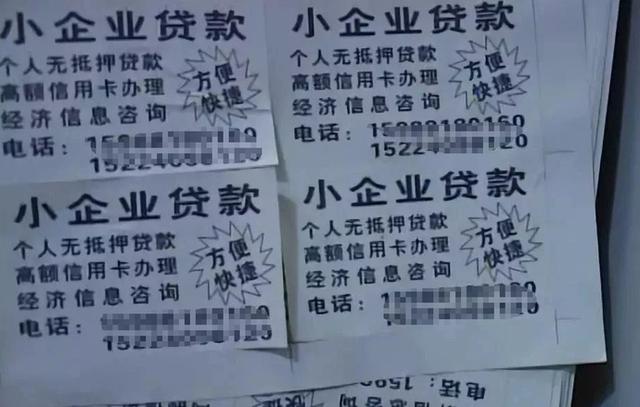 小企业贷款
个人无抵押贷款
高额信用卡办理
经济信息咨询
方便
快捷
电话：
小企业贷款
个人无抵押贷款
高额信用卡办理
经济信息咨询
方便
快捷
电话：
小企业贷款
个人无抵押贷款
高额信用卡办理
经济信息咨询
方便
快捷
电话：
小企业贷款
个人无抵押贷款
高额信用卡办理
经济信息咨询
方便
快捷
电话：
电话：